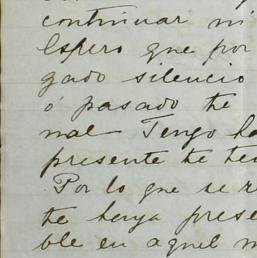 continuar mi
Espero que por
gado silencio
ó pasado te
mal Tengo
presente te
Por lo que se
te tenga
ble en aquel